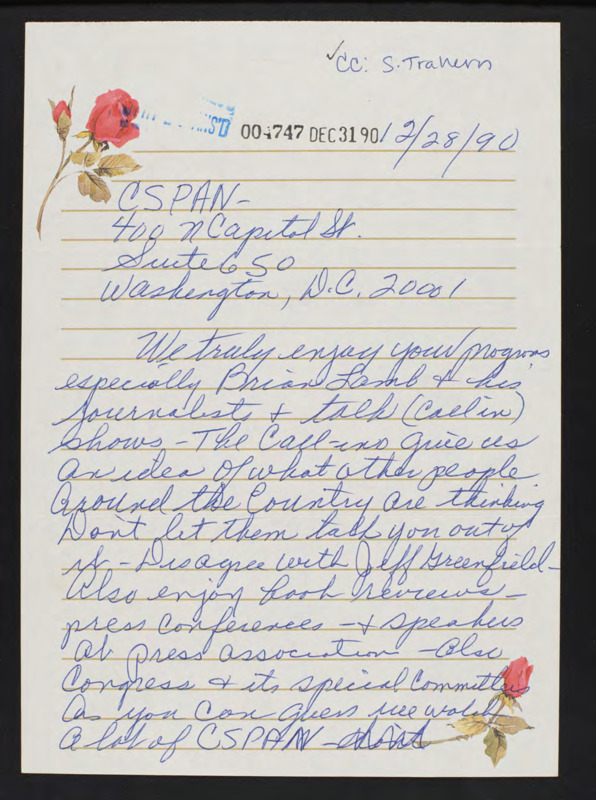 ✓CC: S. Trahern
004747 DEC 31 90
12/28/90
CSPAN-
400 N Capitol St.
Suite 650
Washington, D.C. 20001
We truly enjoy your programs
especially Brian Lamb & his
journalists & talk (call in)
shows - The Call-ins give us
an idea of what other people
around the Country are thinking
Don't let them talk you out of
it - Disagree with Jeff Greenfield -
Also enjoy book reviews -
press conferences - & speakers
at press association - also
Congress & its special Committees
As you can guess we watch
a lot of CSPAN -